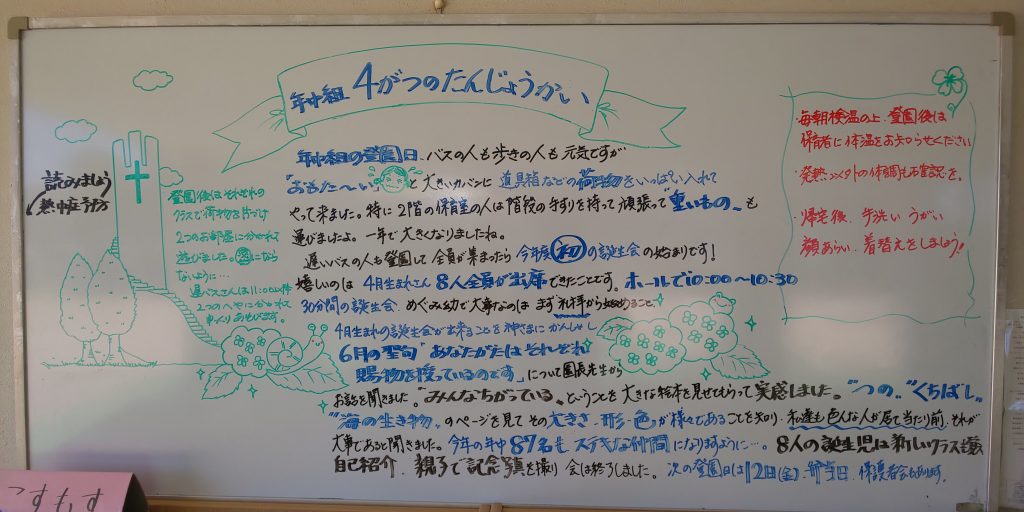 年中組 4がつのたんじょうかい
年中組の登園日、バスの人も歩きの人も 元気ですが
"おもた〜い" と 大きいカバンに 道具箱などの荷物をいっぱい入れて
やって来ました。特に 2階の保育室の人は階段の手すりを持って 頑張って"重いもの"も
運びましたよ。一年で大きくなりましたね。
遅いバスの人も登園して 全員が集まったら 今年度 初 の誕生会の始まりです!
嬉しいのは 4月生まれさん 8人全員が出席できたことです。ホールで10:00〜10:30
30分間の誕生会。めぐみ幼で大事なのは まず 礼拝から始めること。
4月生まれの誕生会が出来ることを神さまに かんしゃし
6月の聖句"あなたがたは それぞれ
賜物を授っているのです」について園長先生から
お話を聞きました。"みんなちがっている"ということを 大きな絵本を見せてもらって 実感しました。"つの" "くちばし"
"海の生き物"のページを見て その 大きさ・形・色が 様々であることを知り、私達も色んな人が居て当たり前、それが
大事であると聞きました。今年の年中 87名も ステキな仲間になりますように…。8人の誕生児は新しいクラスを
自己紹介、親子で記念写真を撮り 会は終了しました。次の登園日は12日(金)、弁当日、保護者会もあります。
読みましょう
熱中症予防
登園後はそれぞれの
クラスで荷物を片づけ
2つのお部屋に分かれて
遊びました。密になら
ないように…
遅バスさんは11:00以降
2つのへやに分かれて
ゆっくりあそびます。
・毎朝検温の上、登園後は
保育者に体温をお知らせください
・発熱以外の体調も確認を。
・帰宅後、手洗い うがい
顔あらい、着替えをしましょう!
こすもす